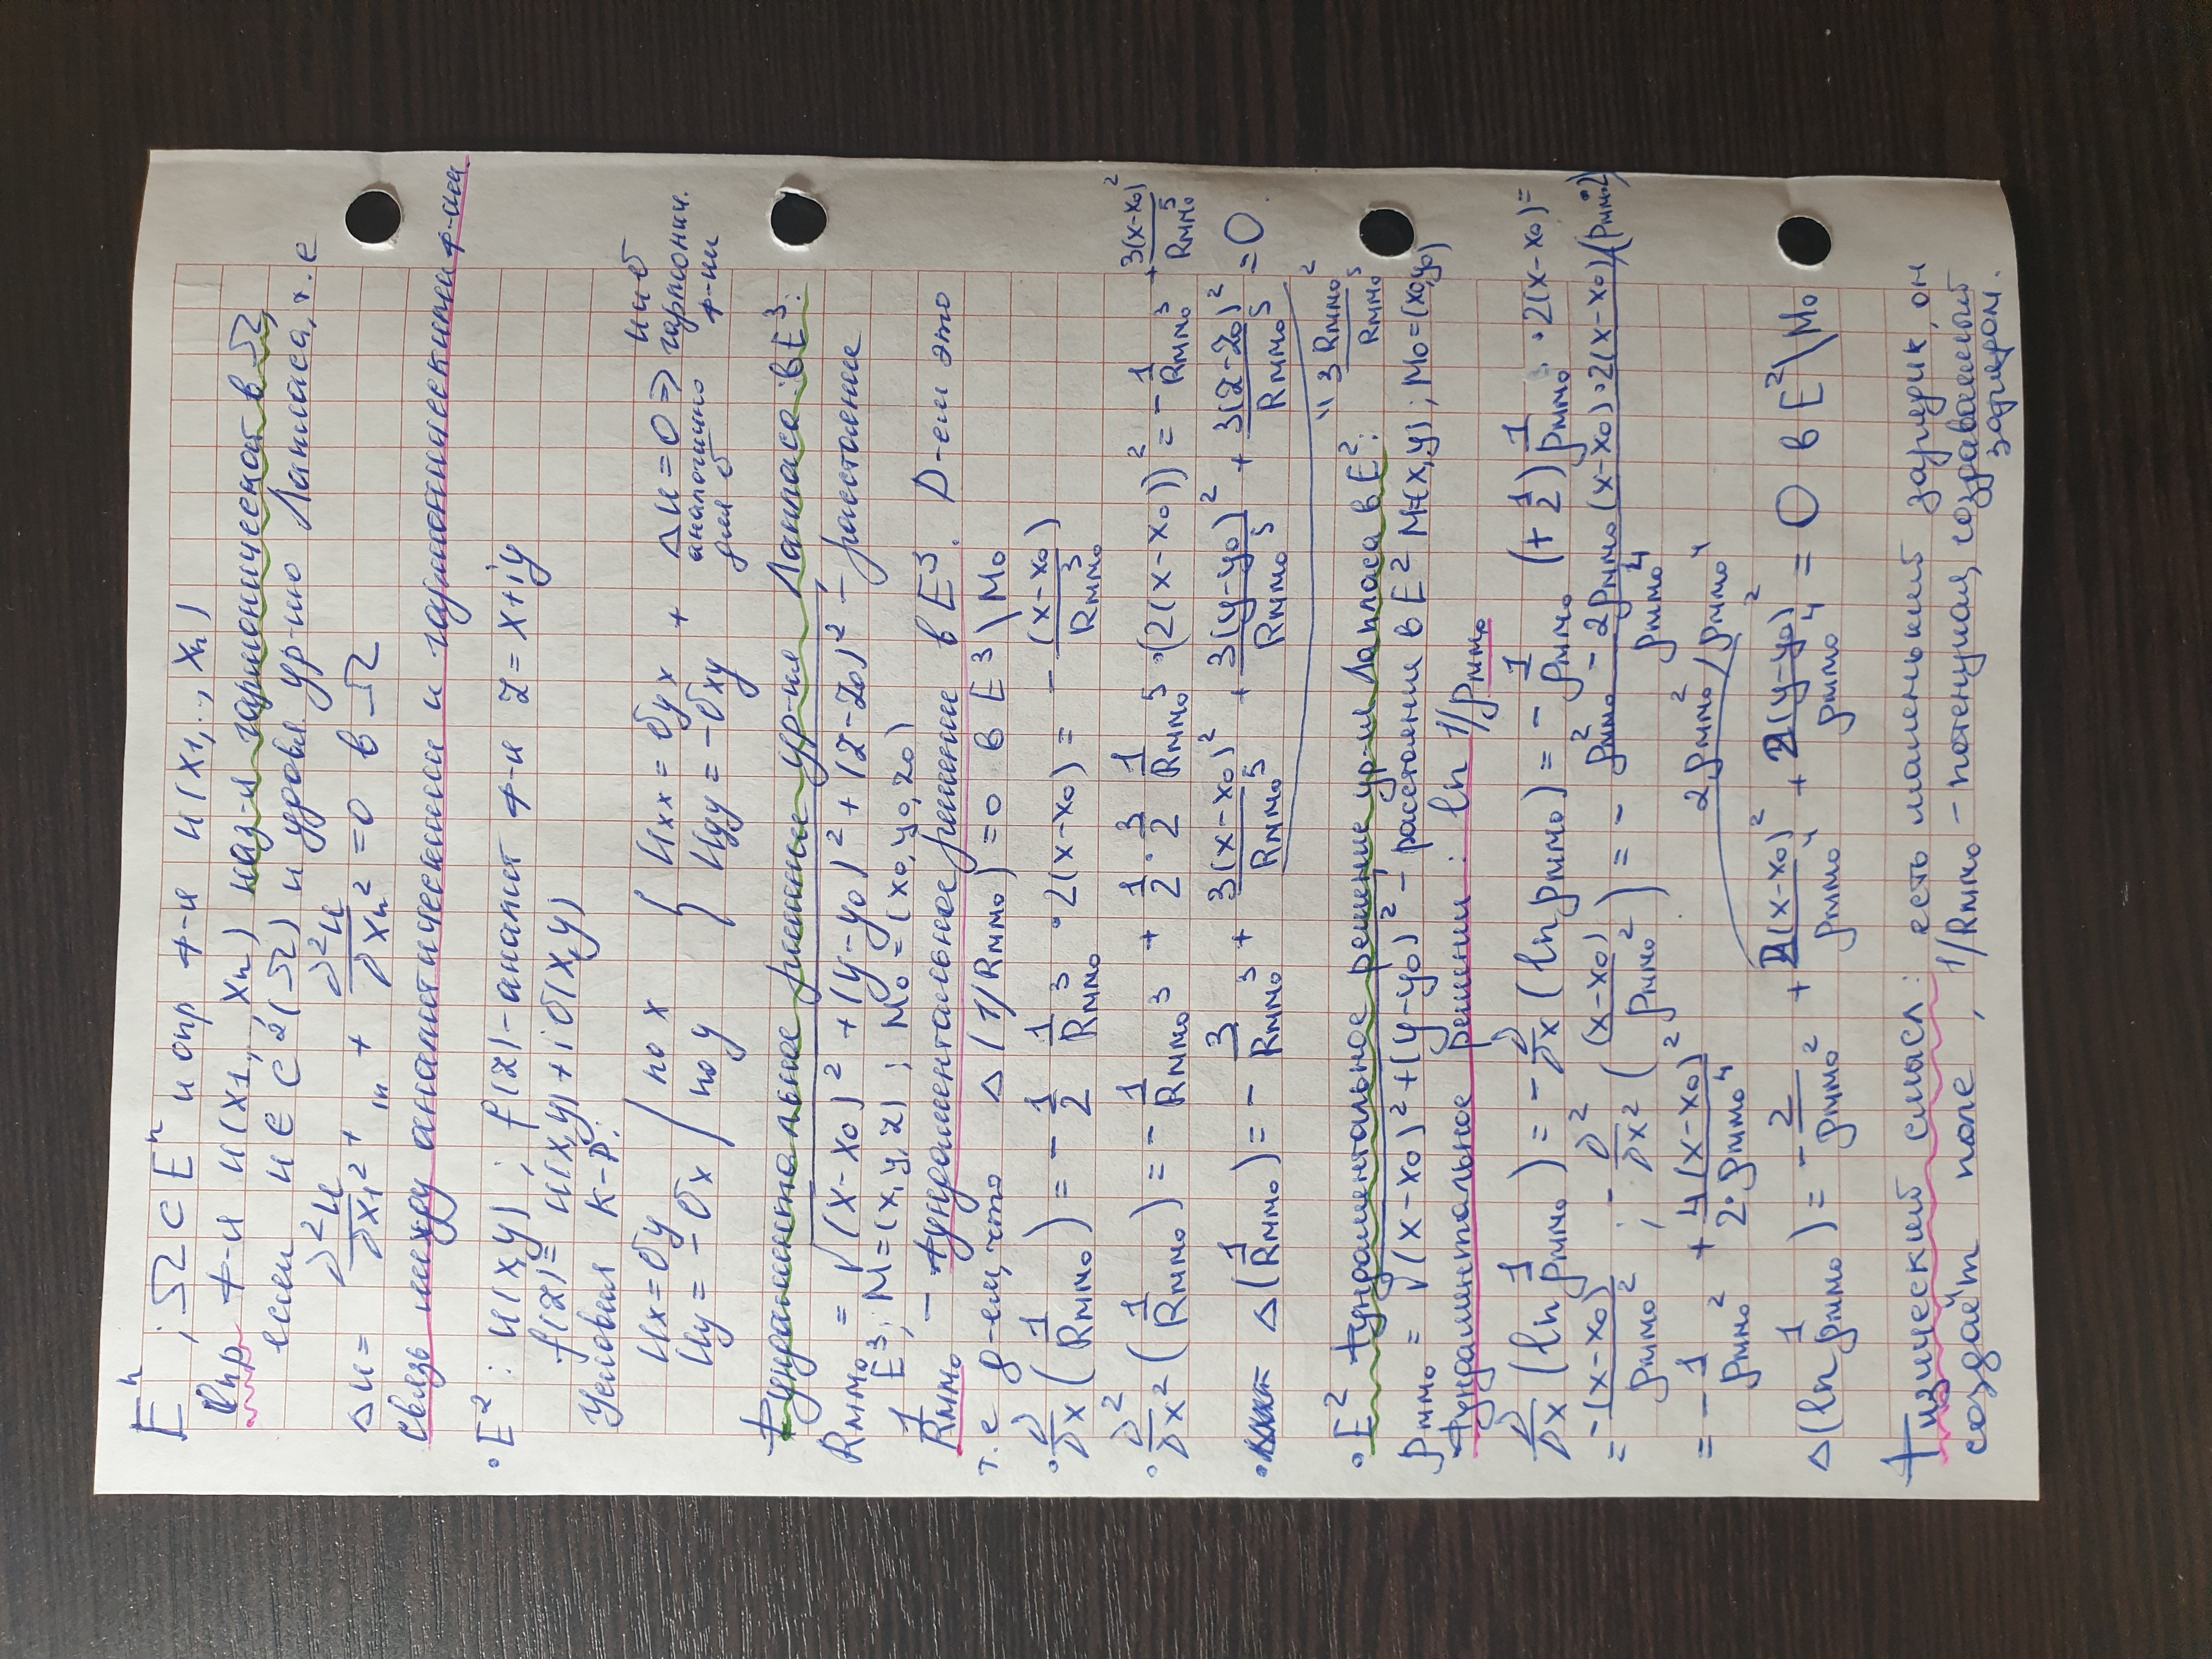 Eⁿ ; Ω ⊂ Eⁿ и опр ф-и u(x₁,.., xₙ)
Опр ф-и u(x₁,.., xₙ) наз-ся гармонической в Ω,
если u ∈ C²(Ω) и уровл ур-ию Лапласа, т.е
Δu = ∂²u/∂x₁² + ... + ∂²u/∂xₙ² = 0 в Ω
Связь между аналитическими и гармоническими ф-ями
• E² : u(x,y) ; f(z) - аналит ф-и z = x+iy
f(z) = u(x,y) + i v(x,y)
Условия К-Р.
{ u_x = v_y / по x { u_xx = v_yx + Δu = 0 => u и v гармонич. ф-ии
u_y = -v_x / по y u_yy = -v_xy аналогично для v
Фундаментальное решение ур-ия Лапласа в E³:
R_MM₀ = √((x-x₀)² + (y-y₀)² + (z-z₀)²) - расстояние
E³; M=(x,y,z) ; M₀=(x₀,y₀,z₀)
1/R_MM₀ - фундаментальное решение в E³. D-ем это
т.е д-ем, что Δ(1/R_MM₀) = 0 в E³\M₀
• ∂/∂x (1/R_MM₀) = - 1/2 1/R_MM₀³ · 2(x-x₀) = - (x-x₀)/R_MM₀³
• ∂²/∂x² (1/R_MM₀) = - 1/R_MM₀³ + 1/2 · 3/2 1/R_MM₀⁵ · (2(x-x₀))² = - 1/R_MM₀³ + 3(x-x₀)²/R_MM₀⁵
• Δ(1/R_MM₀) = - 3/R_MM₀³ + 3(x-x₀)²/R_MM₀⁵ + 3(y-y₀)²/R_MM₀⁵ + 3(z-z₀)²/R_MM₀⁵ = 0
" 3R_MM₀²/R_MM₀⁵
• E² фундаментальное решение ур-ия Лапласа в E²:
ρ_MM₀ = √((x-x₀)² + (y-y₀)²) - расстояние в E² M=(x,y) ; M₀=(x₀,y₀)
Фундаментальное решении: ln 1/ρ_MM₀
∂/∂x (ln 1/ρ_MM₀) = - ∂/∂x (ln ρ_MM₀) = - 1/ρ_MM₀ (+ 1/2) 1/ρ_MM₀ · 2(x-x₀) =
= -(x-x₀)/ρ_MM₀² ; - ∂²/∂x² ((x-x₀)/ρ_MM₀²) = - ρ_MM₀² - 2ρ_MM₀(x-x₀)·2(x-x₀)/(ρ_MM₀·2)/ρ_MM₀⁴
= - 1/ρ_MM₀² + 4(x-x₀)²/2·ρ_MM₀⁴
2ρ_MM₀²/ρ_MM₀⁴
Δ(ln 1/ρ_MM₀) = - 2/ρ_MM₀² + 2(x-x₀)²/ρ_MM₀⁴ + 2(y-y₀)²/ρ_MM₀⁴ = 0 в E²\M₀
Физический смысл: есть маленький зарядик, он
создаёт поле, 1/R_MM₀ - потенциал, создаваемый
зарядом.